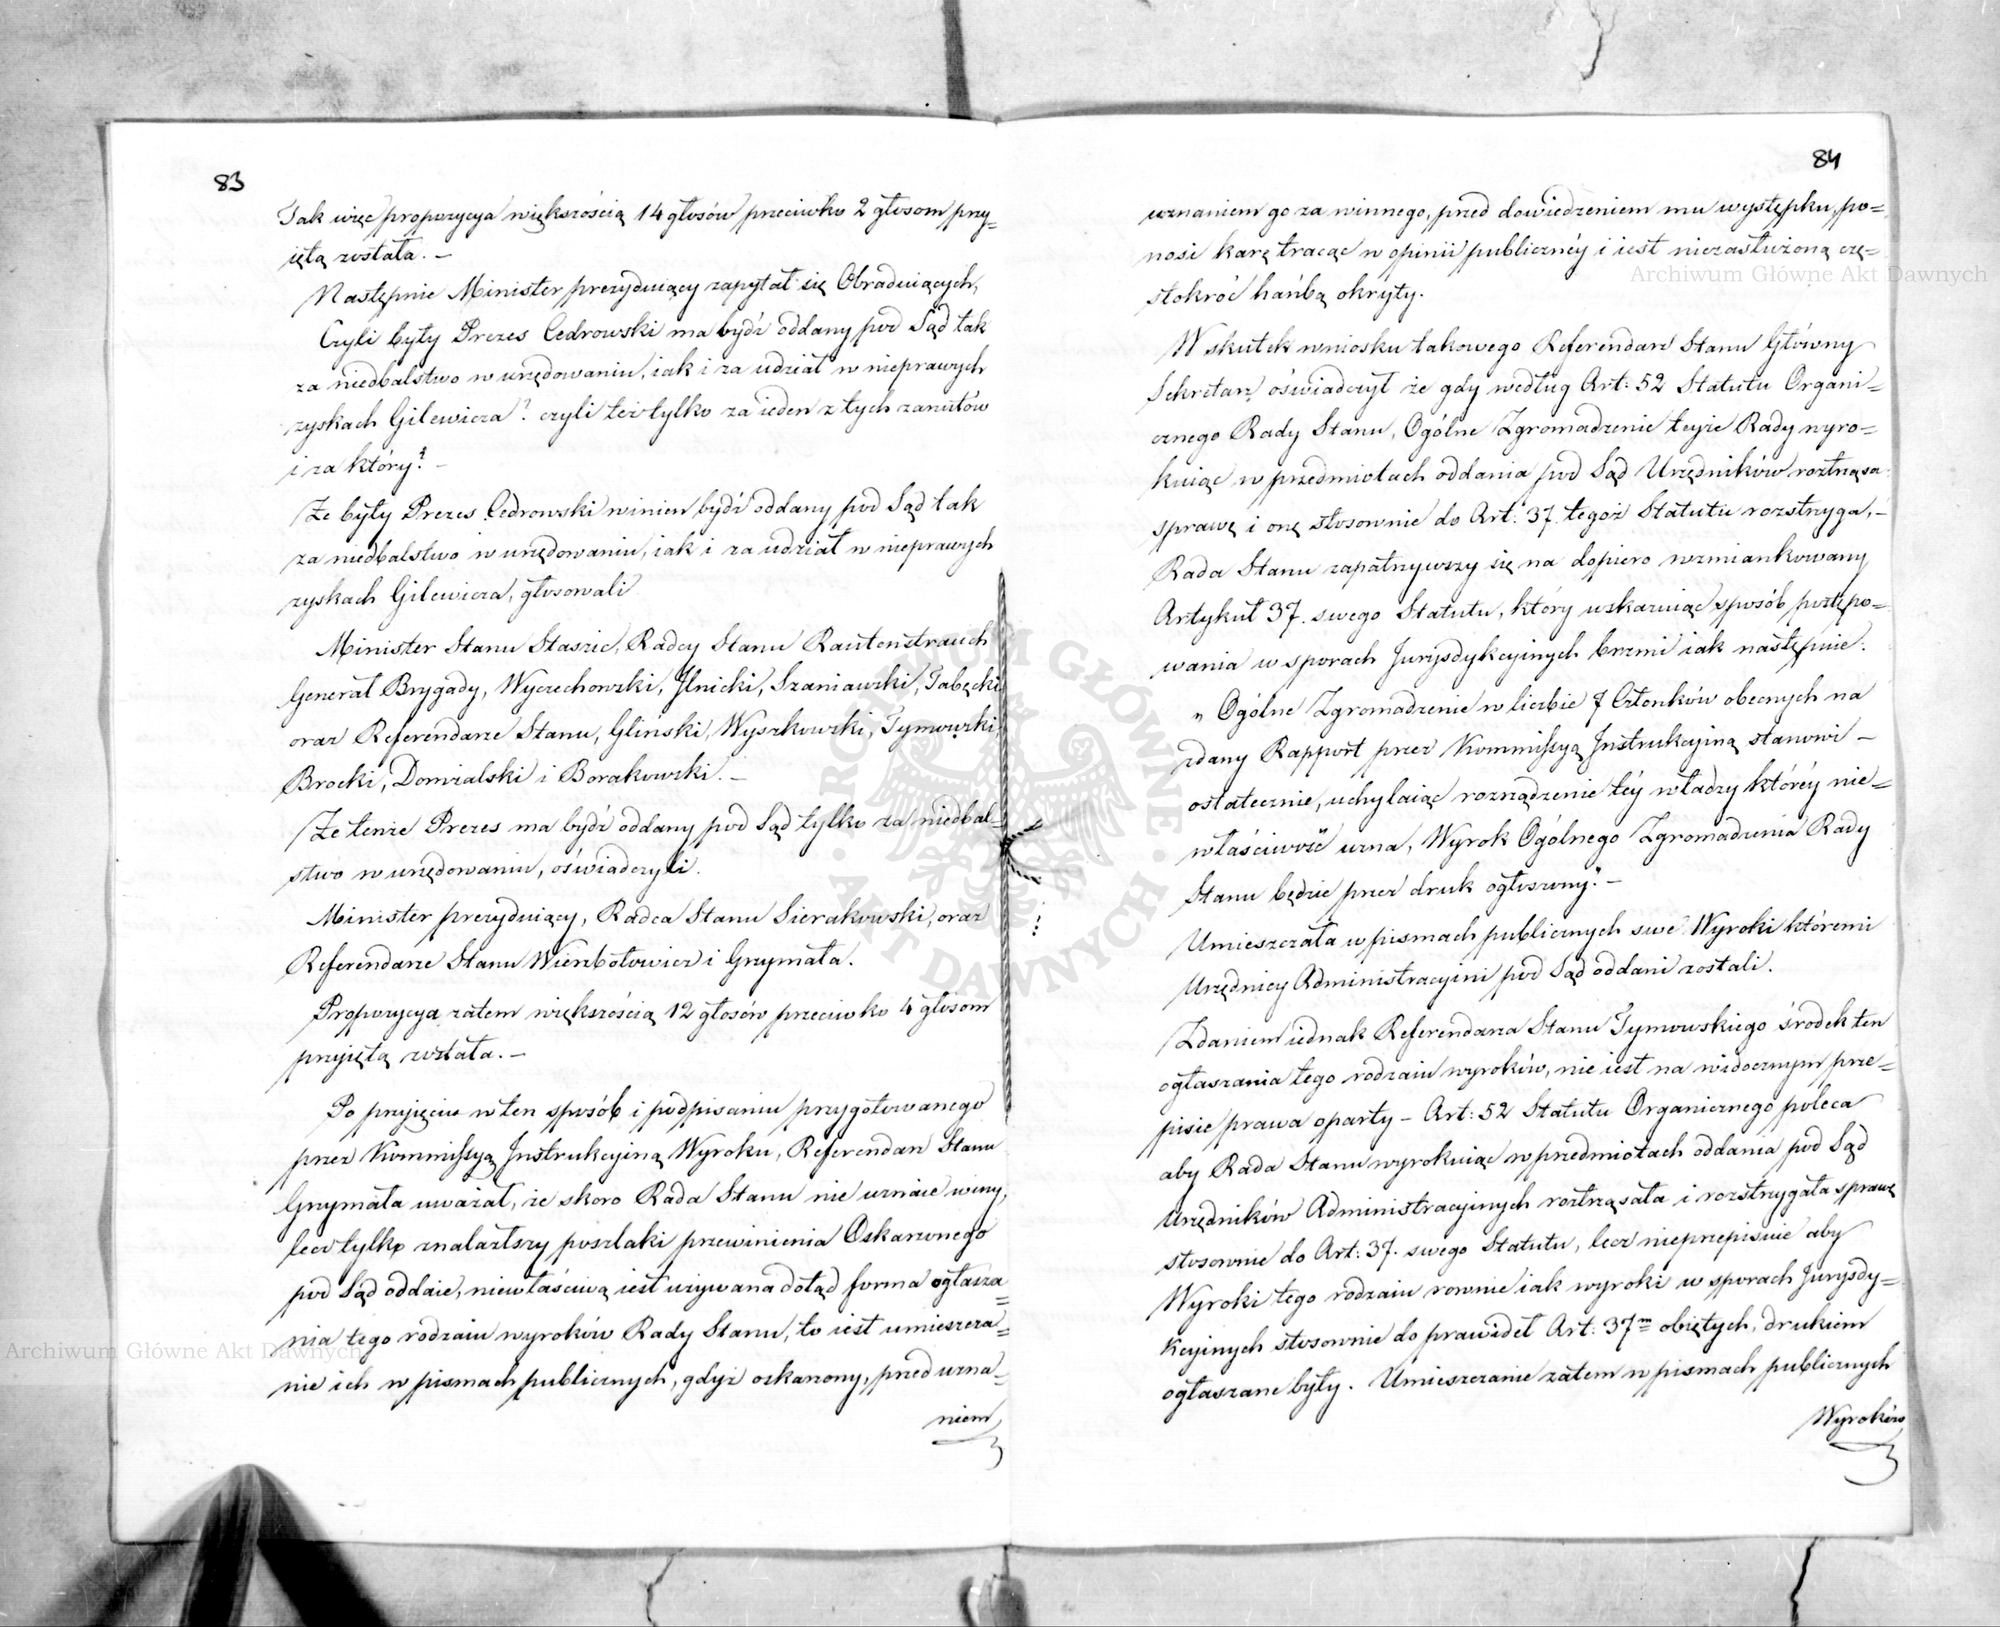 83
Tak więc propozycya większością 14 głosów przeciwko 2 głosom przy=
iętą została. –
Następnie Minister prezyduiący zapytał się Obraduiących,
Czyli były Prezes Cedrowski ma bydź oddany pod Sąd tak
za niedbalstwo w urzędowaniu, iak i za udział w nieprawych
zyskach Gilewicza? czyli też tylko za ieden z tych zarzutów
i za który? –
Że były Prezes Cedrowski winien bydź oddany pod Sąd tak
za niedbalstwo w urzędowaniu, iak i za udział w nieprawych
zyskach Gilewicza, głosowali
Minister Stanu Staszic, Radcy Stanu Rautenstrauch
Generał Brygady, Wyczechowski, Ilnicki, Szaniawski, Tabęcki
oraz Referendarze Stanu, Gliński, Wyszkowski, Tymowski,
Brocki, Domżalski i Borakowski. –
Że tenże Prezes ma bydź oddany pod Sąd tylko za niedbal=
stwo w urzędowaniu, oświadczyli.
Minister prezyduiący, Radca Stanu Sierakowski, oraz
Referendarze Stanu Wierzbołowicz i Grzymała.
Propozycya zatem większością 12 głosów przeciwko 4 głosom
przyiętą została. –
Po przyięciu w ten sposób i podpisaniu przygotowanego
przez Kommissyą Instrukcyiną Wyroku, Referendarz Stanu
Grzymała uważał, że skoro Rada Stanu nie uznaie winy,
lecz tylko znalazłszy poszlaki przewinienia Oskarżonego
pod Sąd oddaie, niewłaściwą iest używana dotąd forma ogłasza=
nia tego rodzaiu wyroków Rady Stanu, to iest umieszcza=
nie ich w pismach publicznych, gdyż oskarżony, przed uzna=
niem
84
uznaniem go za winnego, przed dowiedzeniem mu występku, po=
nosi karę tracąc w opinii publicznéy i iest niezasłużoną czę=
stokroć hańbą okryty.
W skutek wniosku takowego Referendarz Stanu Główny
Sekretarz oświadczył że gdy według Art: 52 Statutu Organi=
cznego Rady Stanu, Ogólne Zgromadzenie teyże Rady wyro=
kuiąc w przedmiotach oddania pod Sąd Urzędników roztrząsa
sprawę i onę stosownie do Art: 37. tegoż Statutu rozstryga, –
Rada Stanu zapatrzywszy się na dopiero wzmiankowany
Artykuł 37. swego Statutu, który wskazuiąc sposób postępo=
wania w sporach Jurysdykcyinych brzmi iak następnie:
„ Ogólne Zgromadzenie w liczbie 7 Członków obecnych na
zdany Rapport przez Kommissyą Instrukcyiną stanowi –
ostatecznie, uchylaiąc rozrządzenie téy władzy któréy nie=
właściwość uzna, Wyrok Ogólnego Zgromadzenia Rady
Stanu będzie przez druk ogłoszony." –
Umieszczała w pismach publicznych swe Wyroki któremi
Urzędnicy Administracyini pod Sąd oddani zostali.
Zdaniem iednak Referendarza Stanu Tymowskiego środek ten
ogłaszania tego rodzaiu wyroków, nie iest na widocznym prze=
pisie prawa oparty – Art: 52 Statutu Organicznego poleca
aby Rada Stanu wyrokuiąc w przedmiotach oddania pod Sąd
Urzędników Administracyinych roztrząsała i rozstrzygała sprawę
stosownie do Art: 37. swego Statutu, lecz nieprzepisuie aby
Wyroki tego rodzaiu rownie iak wyroki w sporach Jurysdy=
kcyinych stosownie do prawideł Art: 37m obiętych, drukiem
ogłaszane były. Umieszczanie zatem w pismach publicznych
Wyroków
Archiwum Główne Akt Dawnych
Archiwum Główne Akt Dawnych
ARCHIWUM GŁÓWNE · AKT DAWNYCH ·